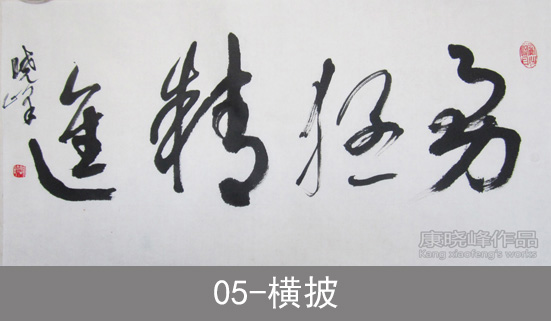 勇猛精進
晓峰
康晓峰作品
Kang xiaofeng's works
05-横披